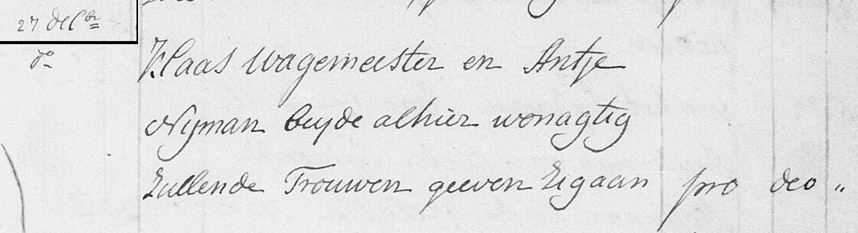 27 decbr
do
Klaas Wagemeester en Antje
Nijman beyde alhier wonagtig
Zullende Trouwen geeven Zig aan pro deo "